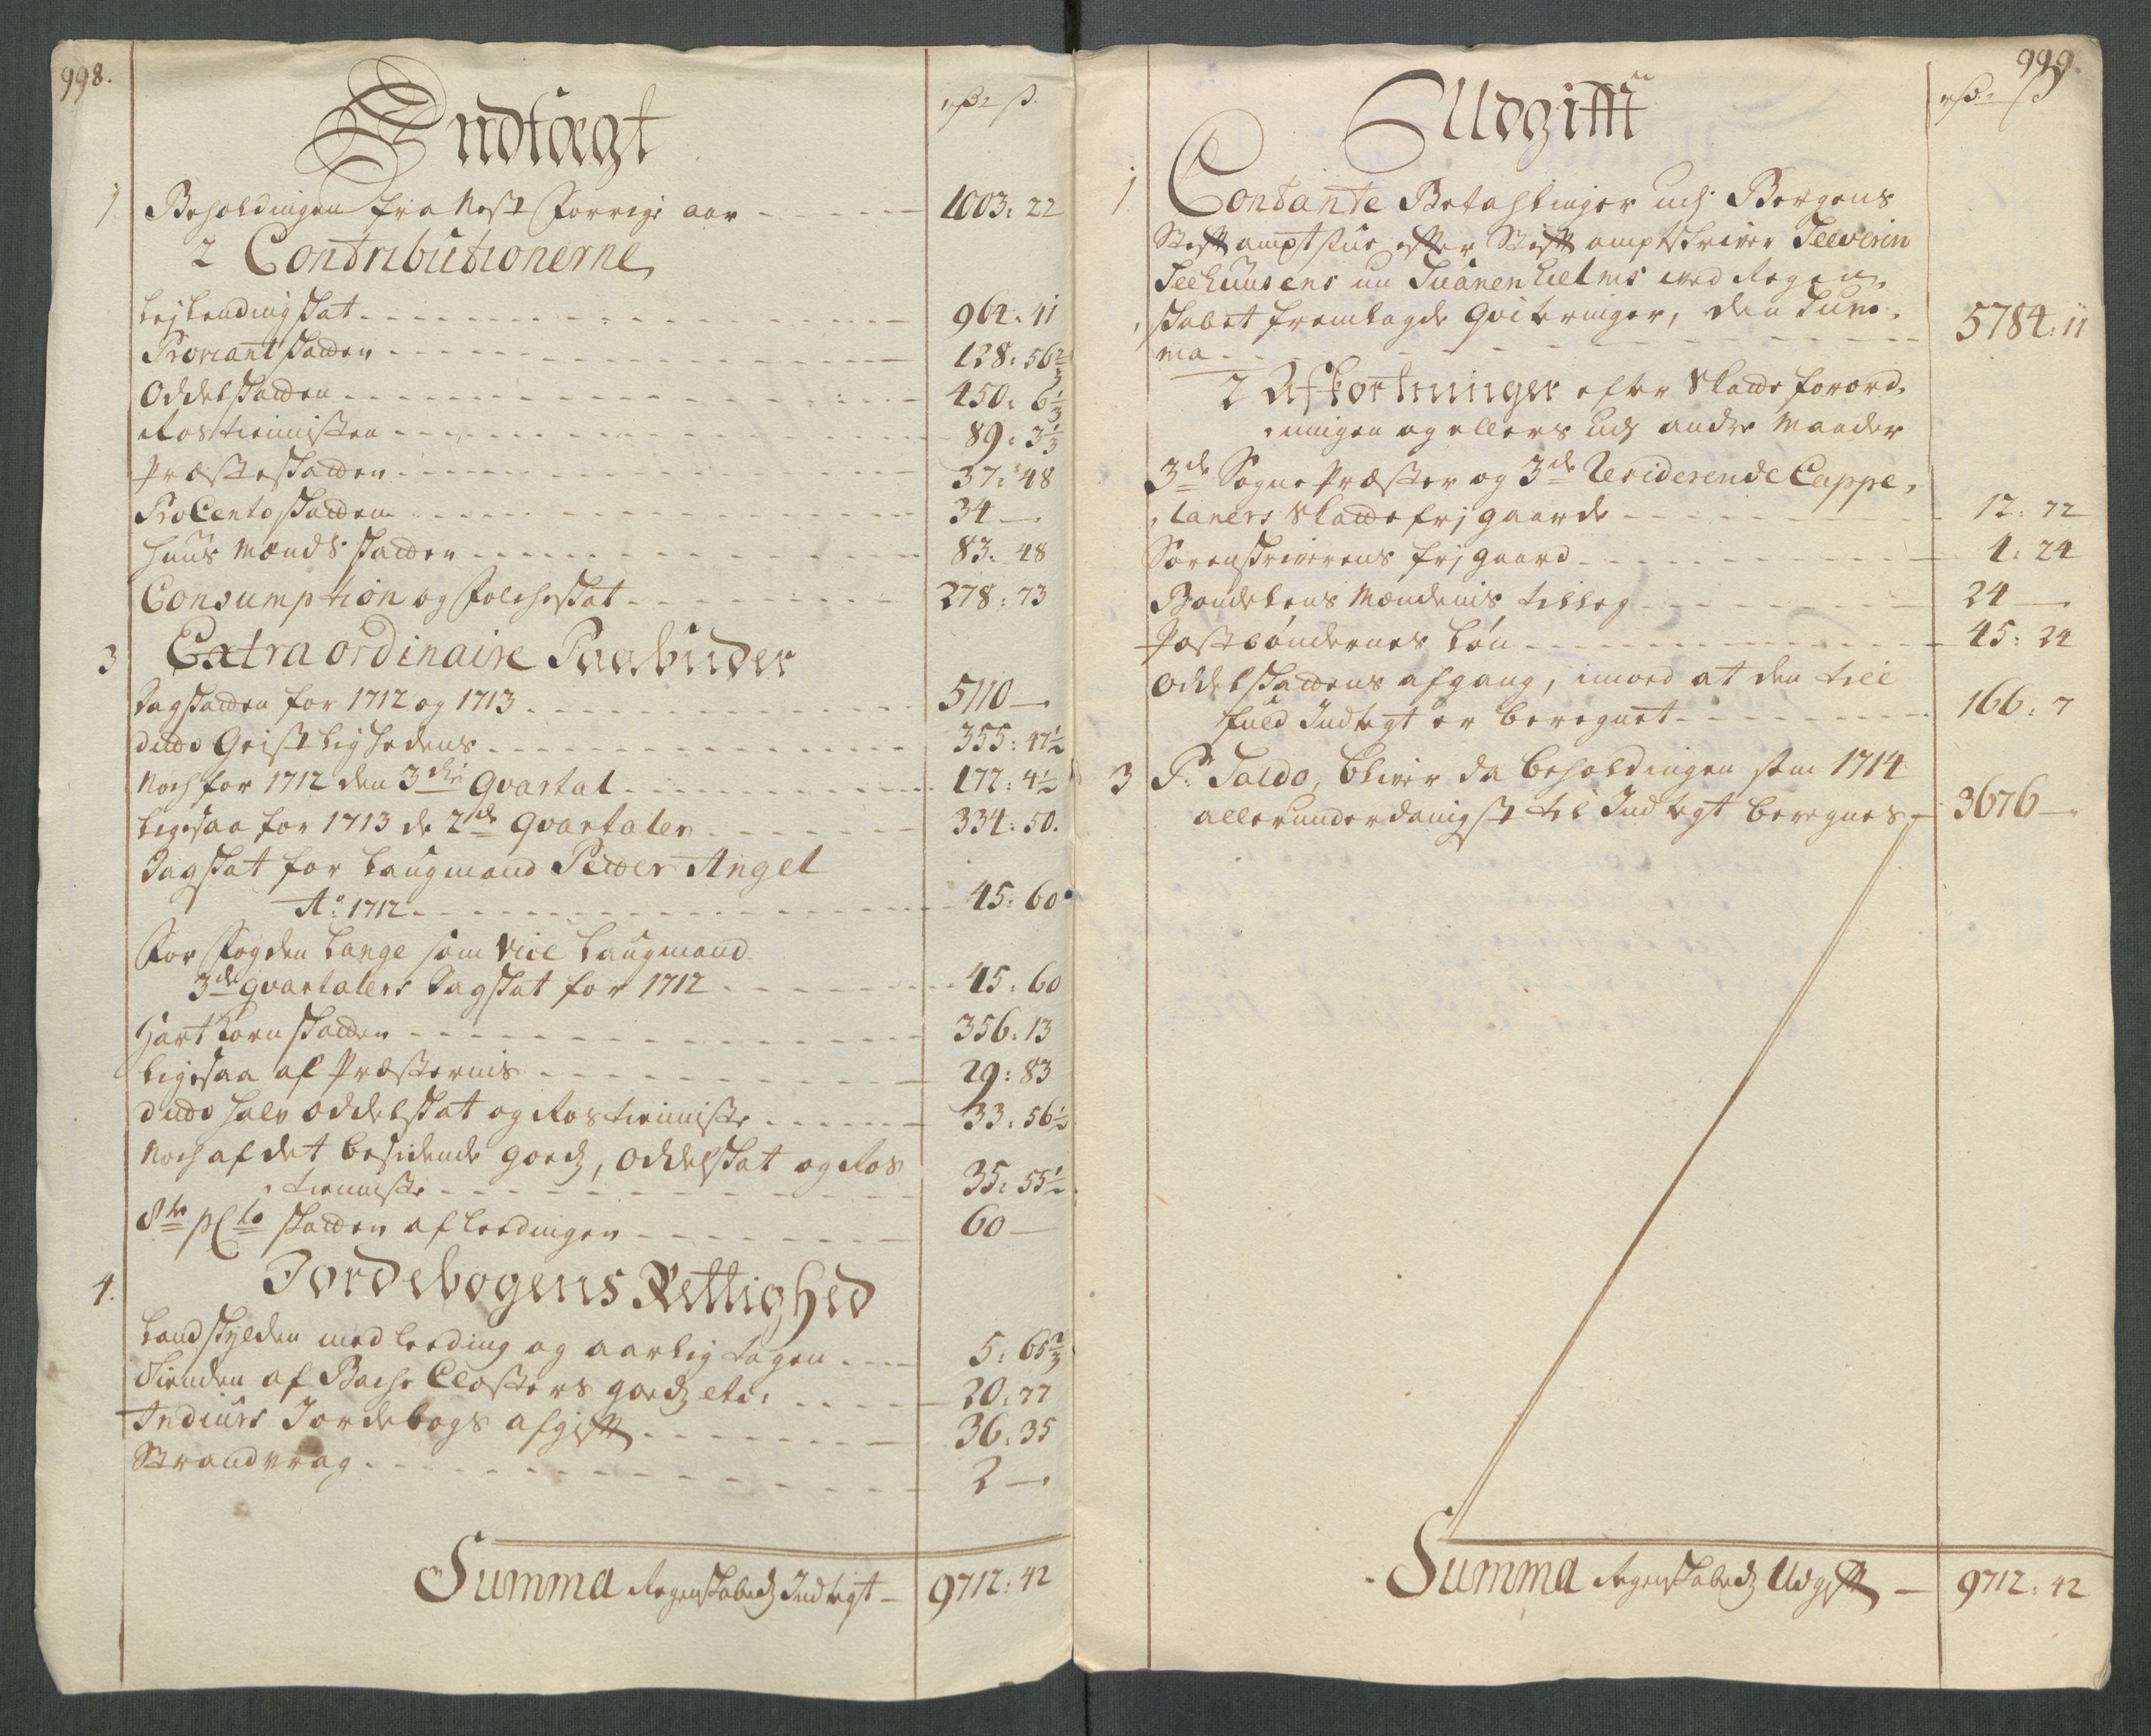 998.
Indtægt
rdr ß.
1 Beholdingen fra Nest forrige aar - - - 1003: 22
2 Contributionerne
Lejlendingskat - - - 964: 41
Proviantskatten - - - 128: 56 2/3
Oddelskatten - - - 450: 6 1/3
Rostienisten - - - 89: 3 1/3
Præsteskatten - - - 37: 48
ProCentoskatten - - - 34 —
Huus Mænds skatten - - - 83: 48
Consumption og Folcheskat - - - 278: 73
3 Extra ordinaire Paabuder
Dagskatten for 1712 og 1713 - - - 5110 —
ditto Geistlighedens - - - 355: 47 1/2
Noch for 1712 den 3die Qvartal - - - 177: 4 1/2
Ligesaa for 1713 de 2de Qvartaler - - - 334: 50.
Dagskat for Laugmand Peder Angel
Ao: 1712 - - - 45: 60
For Fogden Lange som vice Laugmand
3de qvartalers Dagskat for 1712 - - - 45: 60
Hartkornskatten - - - 356: 13
Ligesaa af Præsternis - - - 29: 83
ditto halv oddelskat og Rostieniste - - - 33: 56 1/2
Noch af det besidende goedz, oddelskat og Ros
tieniste - - - 35: 55 1/2
8te pCto skatten af leedingen - - - 60 —
4. Jordebogens Rettighed
Landskylden med leeding og aarlig tagen - - - 5: 65 2/3
Tienden af Bache Closters goedz etc: - - - 20: 77
Indiurs Jordebogs afgifft - - - 36: 35
Strandvrag - - - 2 —
Summa Regenskabedz Indtegt — 9712: 42
999.
Udgifft
rdr ß
1 Contante Betahlinger udj Bergens
Stifft amptstue efter Stifft amptskriver Seeverin
Seehuusens nu Svanenhielms med Regen
skabet fremlagde Qviteringer, den Sum
ma - - - 5784: 11
2 Afkortninger efter Skatte forord
ningen og ellers udj andre Maader
3de Sogne Præster og 3de Residerende Cappe
laners Skattefrj gaarde - - - 12: 72
Sorenskriverens frj gaard - - - 4: 24
Bondelens Mændenis tilleg - - - 24 —
Postbøndernes løn - - - 45: 24
Oddelskattens afgang, imod at den till
fuld Indtegt er beregnet - - - 166: 7
3 Pr Saldo, bliver da beholdingen som 1714
allerunderdanigst til Indtegt beregnes - 3676 —
Summa Regenskabedz Udgifft — 9712: 42